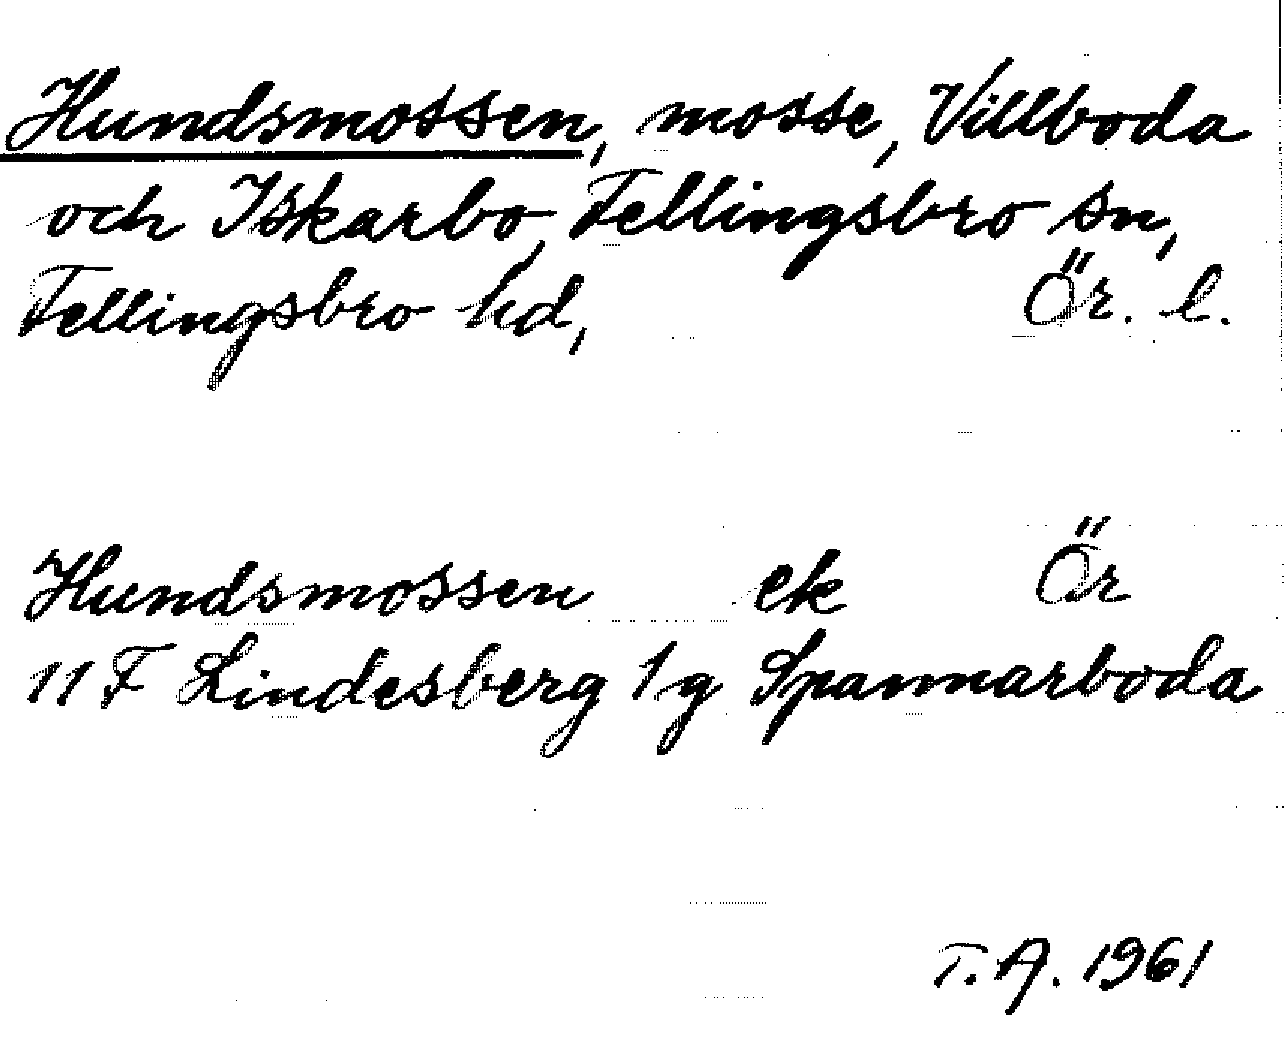 Hundsmossen, mosse, Villboda
och Iskarbo, Fellingsbro sn,
Fellingsbro hd, Ör. l.
Hundsmossen ek Ör
11 F Lindesberg 1 g Spannarboda
T.A. 1961